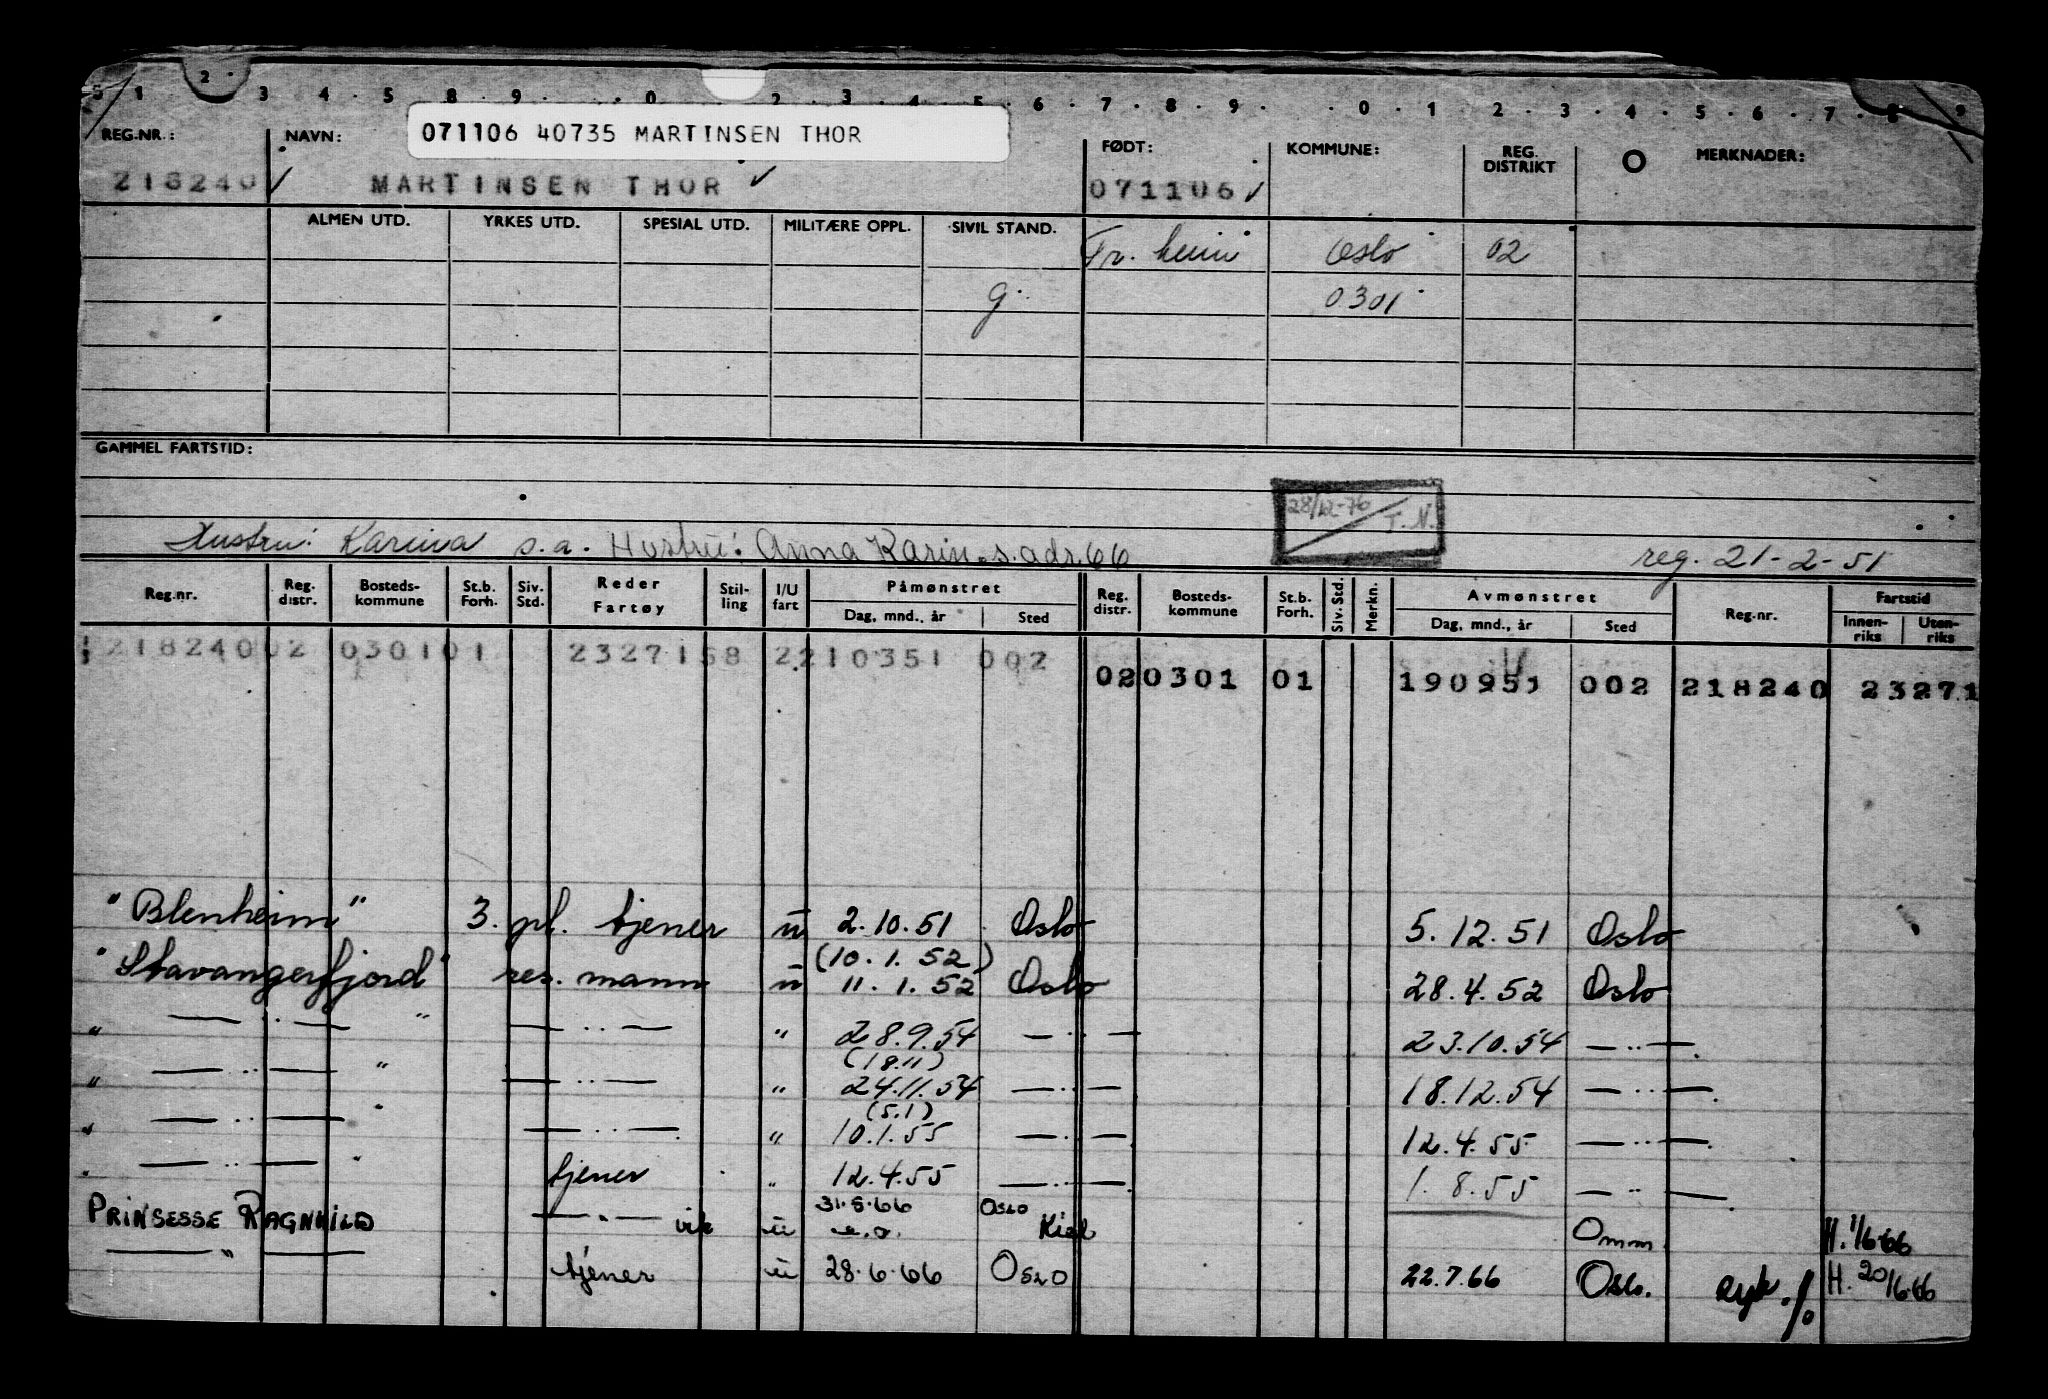 5 1 2 3 4 5 8 9 0 2 3 4 5 6 7 8 9 0 1 2 3 4 5 6 7 8 9
071106 40735 MARTINSEN THOR
REG.NR.: NAVN: FØDT: KOMMUNE: REG. DISTRIKT MERKNADER:
218240 MARTINSEN THOR 071106
ALMEN UTD. YRKES UTD. SPESIAL UTD. MILITÆRE OPPL. SIVIL STAND. Tr. heim Oslo 02
g. 0301
GAMMEL FARTSTID:
28/12-76 T.N.
Hustru: Karina s.a. Hustru: Anna Karin s. adr. 66 reg. 21-2-51
Reg.nr. Reg. distr. Bosteds-kommune St.b. Forh. Siv. Std. Reder Fartøy Stil-ling I/U fart Påmønstret Dag, mnd., år Sted Reg. distr. Bosteds-kommune St.b. Forh. Siv. Std. Merkn. Avmønstret Dag, mnd., år Sted Reg.nr. Fartstid Innen-riks Uten-riks
218240 02 0301 01 23271 58 2 210351 002
02 0301 01 190951 002 218240 23271
"Blenheim" 3. pl. tjener u 2.10.51 Oslo 5.12.51 Oslo
(10.1.52)
"Stavangerfjord" res. mann u 11.1.52 Oslo 28.4.52 Oslo
" — .. — " — .. — " 28.9.54 — .. — 23.10.54 — .. —.
(18.11)
" — .. — " — .. — " 24.11.54 — .. — 18.12.54 — .. —.
(5.1)
" — .. — " — .. —. " 10.1.55 — .. — 12.4.55 — .. —.
" — .. — " tjener " 12.4.55 — .. —. 1.8.55 — .. —.
31.5.66 Oslo
PRINSESSE RAGNHILD — " — vik u Kiel Omm. H. 1/6-66
— " — tjener u 28.6.66 Oslo 22.7.66 Oslo. H. 20/6-66